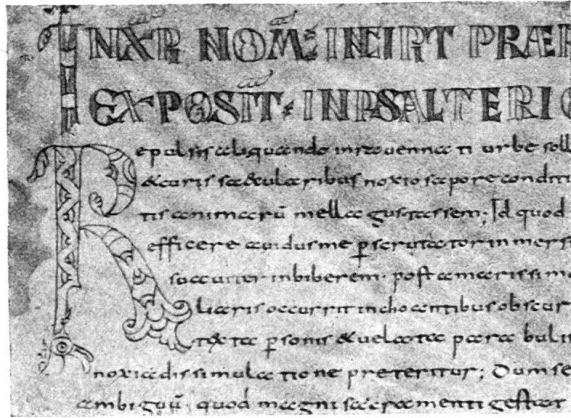 IN XPI NOM INCIPIT PRAEF
EXPOSIT IN PSALTERIO
Repulsis aliquando inrauennati urbe soll
&curis saecularibus noxio sapore condit
tis animarū mella gustassem; Id quod
efficere auidusme ꝑscrutator inmersi
suauiter inbiberem. post amarissima
liaris occurrit inchoantibus obscur
t&xta ꝑsonis &uelata parabolis
noxia dissimulatione preteritur; Dumse
ambiguū. quod magni sacramenti gestat